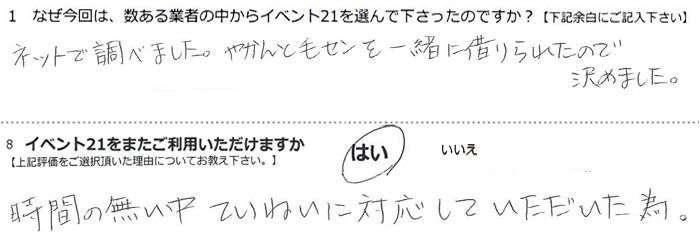 1 なぜ今回は、数ある業者の中からイベント21を選んで下さったのですか？【下記余白にご記入下さい】
ネットで調べました。やかんと毛センを一緒に借りられたので
決めました。
8 イベント21をまたご利用いただけますか はい いいえ
【上記評価をご選択頂いた理由についてお教え下さい。】
時間の無い中 ていねいに対応して いただいた為。